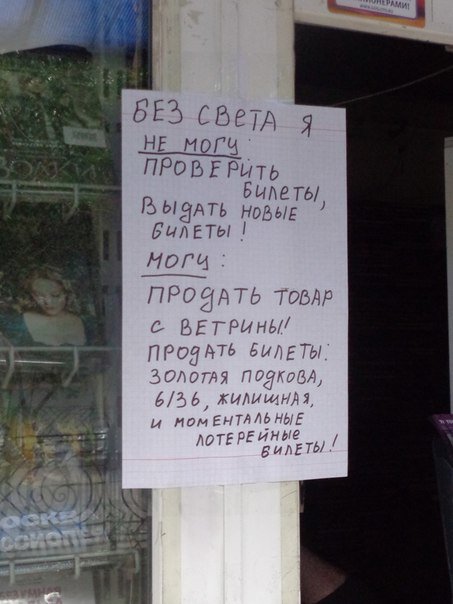 ИОНЕРАМИ!
БЕЗ СВЕТА Я
НЕ МОГУ:
ПРОВЕРИТЬ
БИЛЕТЫ,
ВЫДАТЬ НОВЫЕ
БИЛЕТЫ!
МОГУ:
ПРОДАТЬ ТОВАР
С ВЕТРИНЫ!
ПРОДАТЬ БИЛЕТЫ:
ЗОЛОТАЯ ПОДКОВА,
6/36, ЖИЛИЩНАЯ,
И МОМЕНТАЛЬНЫЕ
ЛОТЕРЕЙНЫЕ
БИЛЕТЫ!